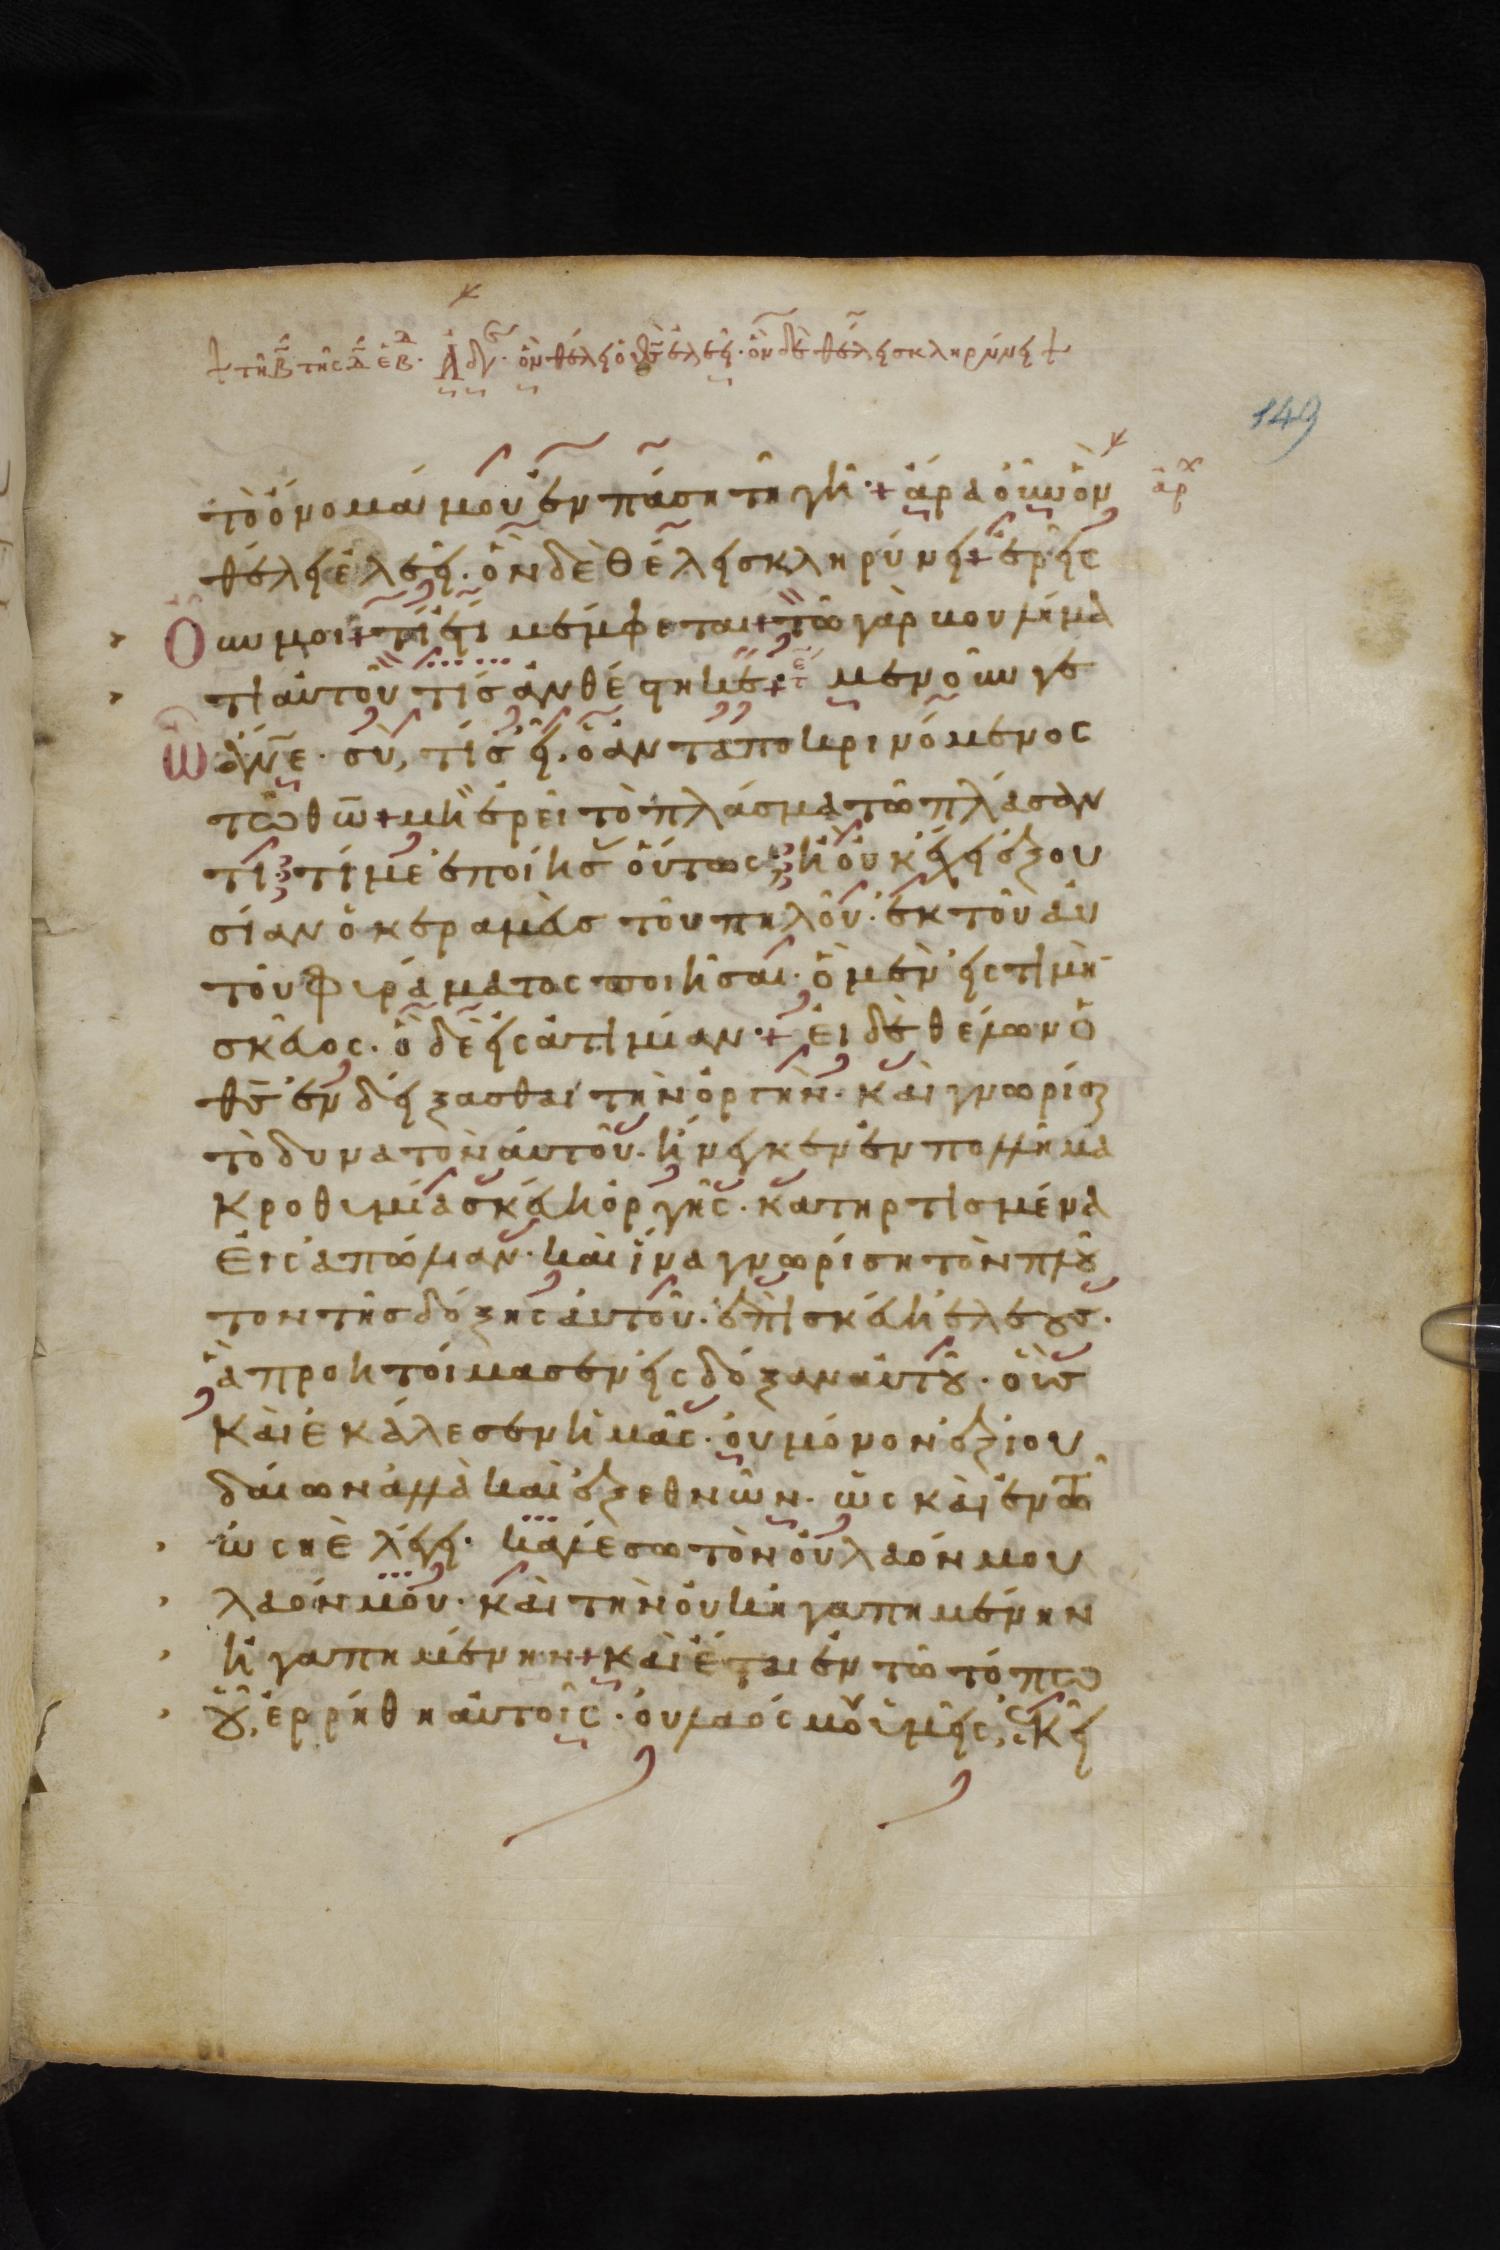 + τῆ β τῆς δ ἑβ. Ἀδγ. ὃν θέλει ὁ θς ἐλεεῖ. ὃν δὲ θέλει σκληρύνει +
149
τὸ ὄνομά μου ἐν πάση τῆ γῆ + ἄρα οὖν ὃν
ἀρχ
θέλει ἐλεεῖ. ὃν δὲ θέλει σκληρύνει + ἐρεῖς
Οὖν μοι + τί ἔτι μέμφεται + τῶ γὰρ βουλήμα
τι αὐτοῦ τίς ἀνθέστηκε + μενοῦνγε
Ὦ ἄνε. σὺ, τίς εἶ. ὁ ἀνταποκρινόμενος
τῶ θῶ + μὴ ἐρεῖ τὸ πλάσμα τῶ πλάσαν
τι τί με ἐποίησ οὕτως ἢ οὐκ ἔχει ἐξου
σίαν ὁ κεραμεὺς τοῦ πηλοῦ. ἐκ τοῦ αὐ
τοῦ φυράματος ποιῆσαι. ὃ μὲν εἰς τιμὴν
σκεῦος. ὃ δὲ εἰς ἀτιμίαν + εἰ δὲ θέλων ὁ
θς ἐνδείξασθαι τὴν ὀργὴν. καὶ γνωρίσαι
τὸ δυνατὸν αὐτοῦ. ἤνεγκεν ἐν πολλῆ μα
κροθυμία σκεύη ὀργῆς. κατηρτισμένα
εἰς ἀπώλειαν. καὶ ἵνα γνωρίση τὸν πλοῦ
τον τῆς δόξης αὐτοῦ. ἐπὶ σκεύη ἐλέους.
ἃ προητοίμασεν εἰς δόξαν αὐτοῦ. οὓσ
καὶ ἐκάλεσεν ἡμᾶς. οὐ μόνον ἐξ ἰου
δαίων ἀλλὰ καὶ ἐξ ἐθνῶν. ὡς καὶ ἐν τῶ
ὡσηὲ λέγει. καλέσω τὸν οὐ λαόν μου
λαόν μου. καὶ τὴν οὐκ ἠγαπημένην
ἠγαπημένην + καὶ ἔσται ἐν τῶ τόπω
οὗ, ἐρρήθη αὐτοῖς. οὐ λαός μου ὑμεῖς, ἐκεῖ